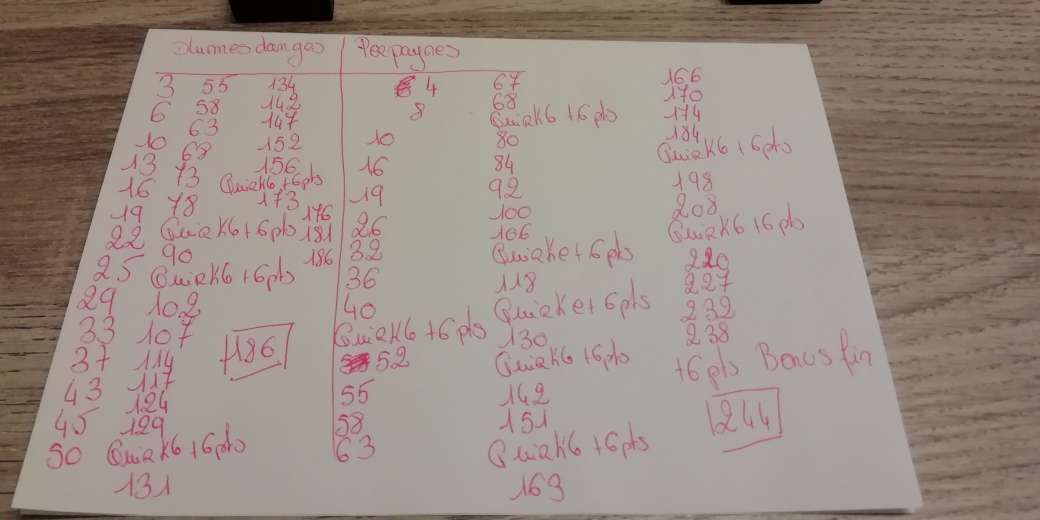 Peepaynes
3
6
10
13
16
19
22
25
29
33
37
43
45
50
55
58
63
68
73
78
Qwirk6 + 6pts
90
Qwirk6 + 6pts
102
107
114
117
124
129
Qwirk6 + 6pts
131
134
142
147
152
156
Qwirk6 + 6pts
173
176
181
186
186
4
8
10
16
19
26
32
36
40
Qwirk6 + 6pts
52
55
58
63
67
68
Qwirk6 + 6pts
80
84
92
100
106
Qwirke + 6pts
118
Qwirke + 6pts
130
Qwirk6 + 6pts
142
151
Qwirk6 + 6pts
163
166
170
174
184
Qwirk6 + 6pts
198
208
Qwirk6 + 6pts
220
227
232
238
+6pts Bonus fin
244